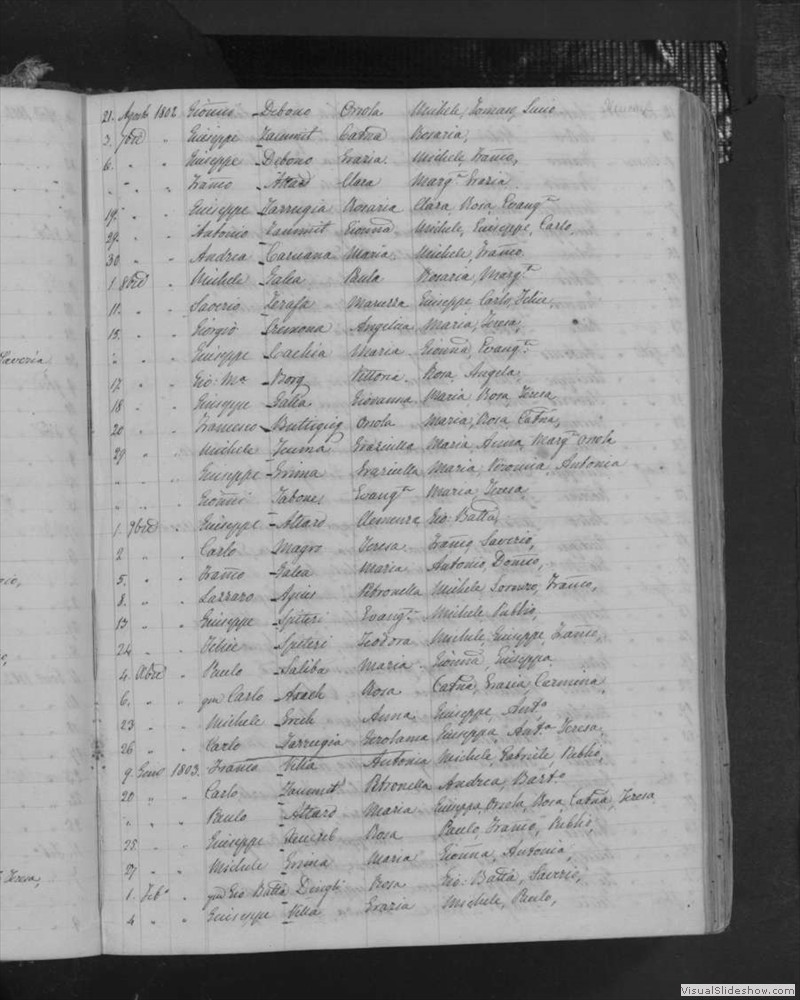 21. Agosto 1802 Gionni - Debono Orsola Michele, Tomas, Suno
3. 7bre " Giuseppe - Zammit Catna Rosaria,
6. " " Giuseppe - Debono Grazia Michele, Franco,
" " " Franco - Attard Clara Margta Grazia
19. " " Giuseppe - Farrugia Rosaria Clara, Rosa, Evangta
29. " " Antonio - Zammit Gionna Michele, Giuseppe, Carlo,
30 " " Andrea - Caruana Maria Michele, Franco
1. 8bre " Michele - Galea Paula Rosaria, Margta
11. " " Saverio - Zerafa Maruzza Giuseppe, Carlo, Felice,
15. " " Giorgio - Cremona Angelica Maria, Teresa,
" " " Giuseppe - Cachia Maria Gionna, Evangta
17. " " Gio: Ma - Borg Vittoria Rosa, Angela,
18 " " Giuseppe - Galea Giovanna Maria Rosa Teresa
20 " " Francesco - Buttigieg Orsola Maria, Rosa Catna,
29 " " Michele - Graziulla Maria, Anna, Margta Orsola
" " " Giuseppe - Grima Graziulla Maria, Veronna, Antonia
" " " Gionni Tabone, Evangta Maria, Teresa,
1. 9bre " Giuseppe - Attard Clemenza Gio: Batta,
2 " " Carlo Magro Teresa Franco, Saverio,
5. " " Franco - Galea Maria Antonio, Domco,
8. " " Lazzaro - Agius Petronella Michele Lorenzo, Franco,
13 " " Giuseppe - Spiteri Evangta Michele Publio,
24 " " Felice - Spiteri Teodora Michele, Giuseppe, Franco,
4. Xbre " Paulo - Saliba Maria Gionna, Giuseppa
6. " " qm Carlo - Axach Rosa Catna, Grazia, Carmina,
23 " " Michele - Grech Anna Giuseppe, Anto
26 " " Carlo - Farrugia Gerolama Giuseppa, Anta Teresa,
9. Genro 1803. Franco - Vella Antonia Michele Gabriele, Publio,
20 " " Carlo - Zammit Petronella Andrea, Barto
" " " Paulo - Attard Maria Giuseppa, Orsola, Rosa, Catna, Teresa,
25 " " Giuseppe - Rosa Paulo, Franco, Publio,
27 " " Michele - Grima Maria Gionna, Antonia,
1. Febo " qm Gio Batta - Dingli Rosa Gio: Batta, Saverio,
4 " " Giuseppe - Vella Grazia Michele, Paulo,
Saveria
Teresa,
VisualSlideshow.com